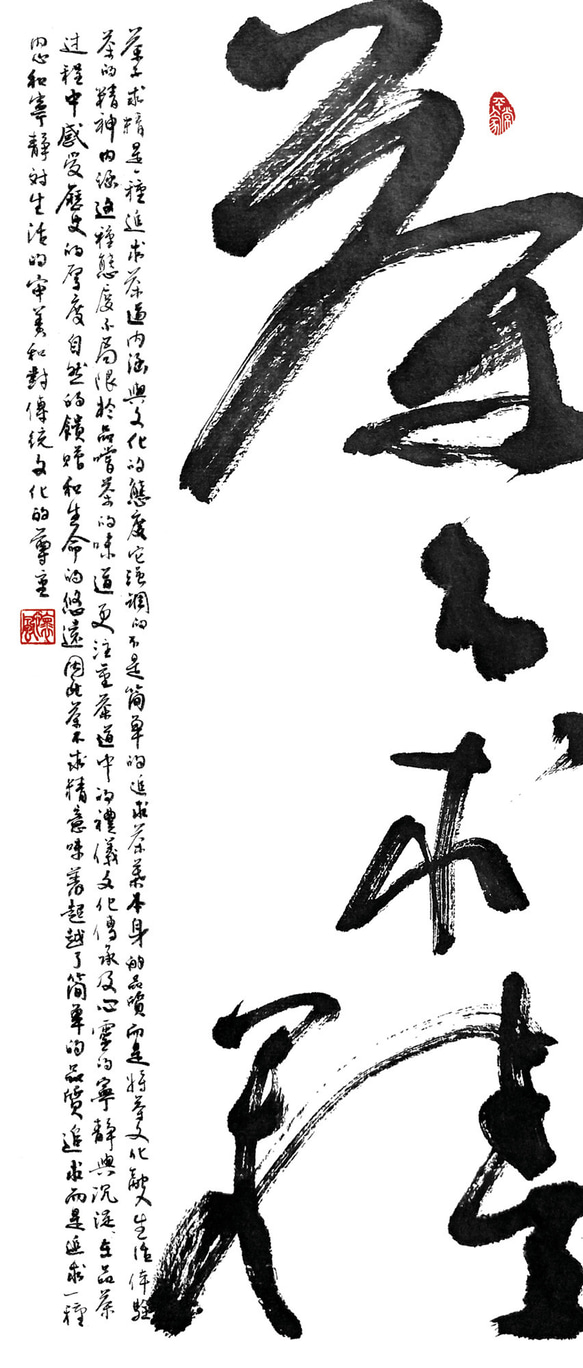 茶不求精
茶不求精是一種追求茶道内涵與文化的態度它强調的不是簡單的追求茶葉本身的品質而是將茶文化融入生活体驗
茶的精神内涵這種態度不局限於品嚐茶的味道更注重茶道中的禮儀文化傳承及心靈的寧靜與沉淀在品茶
过程中感受歷史的厚度自然的饋贈和生命的悠遠因此茶不求精意味著超越了簡單的品質追求而是追求一種
内心和寧靜对生活的审美和對傳統文化的尊重